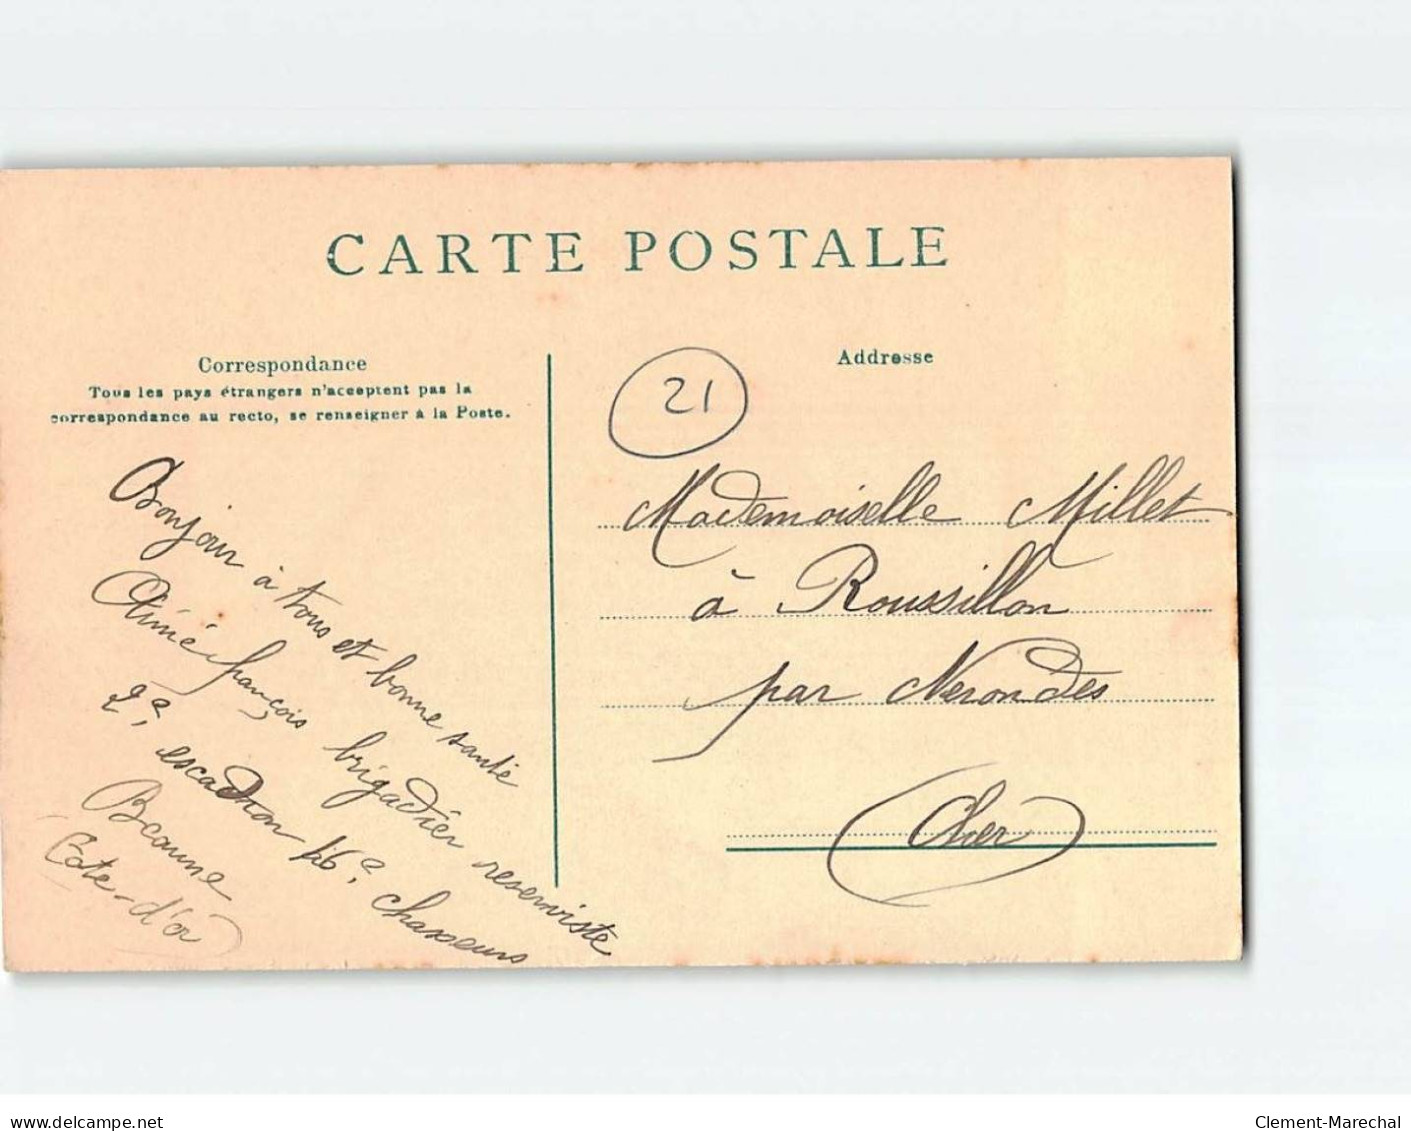 CARTE POSTALE
Correspondance
Tous les pays étrangers n'acceptent pas la
correspondance au recto, se renseigner à la Poste.
Bonjour à tous et bonne santé
Aimé françois brigadier reserviste
2e, escadron 16e, chasseurs
Beaune
(Côte-d'or)
Addresse
21
Mademoiselle Millet
à Roussillon
par Nerondes
(Cher)
delcampe.net
Clement-Marechal